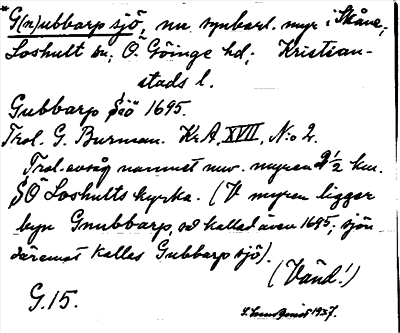 *G(n)ubbarp sjö, nu synbarl. myr i Skåne,
Loshult sn; Ö. Göinge hd; Kristian-
stads l.
Gubbarp Siö 1695.
Trol. G. Burman. Kr.A. XVII, No 2.
Trol. avsåg namnet nuv. myren 2 1/2 km.
SÖ Loshults kyrka. (V myren ligger
byn Gnubbarp, så kallad även 1695; sjön
däremot kallas Gubbarp sjö).
(Vänd!)
G. 15.
1927.